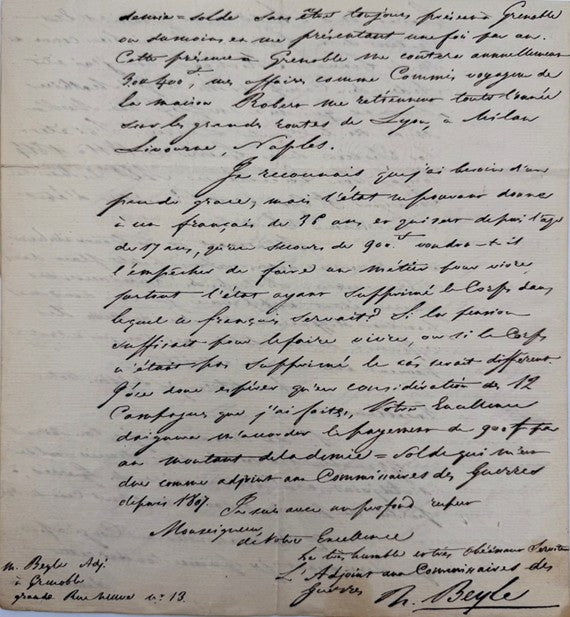 demie=solde sans être toujours présent à Grenoble
ou du moins en me présentant une fois par an.
Cette présence à Grenoble me coûtera annuellement
300 à 400f, mes affaires comme Commis voyageur de
la maison Robert me retiennent toute l'année
sur les grandes routes de Lyon, à Milan
Livourne, Naples.
Je reconnais que j'ai besoin d'un
peu de grace, mais l'état ne pouvant donner
à un français de 36 ans, et qui sert depuis l'age
de 17 ans, qu'un secours de 900f voudra-t-il
l'empêcher de faire un métier pour vivre,
surtout l'état ayant supprimé le Corps dans
lequel ce français servait? Si la pension
suffisait pour le faire vivre, ou si le Corps
n'était pas supprimé le cas serait différent.
J'ose donc espérer qu'en considération des 12
Campagnes que j'ai faites, Votre Excellence
daignera m'accorder le payement de 900f par
an montant de la demie=solde qui m'est
due comme adjoint aux Commissaires des Guerres
depuis 1807.
Je suis avec un profond respect
Monseigneur
de Votre Excellence
Le très humble et très obéissant Serviteur
L'Adjoint aux Commissaires des
Guerres
h. Beyle
m. Beyle Adj.
à Grenoble
grande Rue neuve no 13.